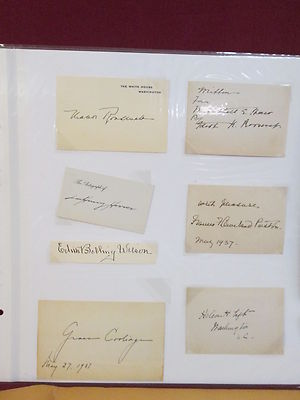 THE WHITE HOUSE
WASHINGTON
Roosevelt
Written
for
by
Edith K. Roosevelt
The Autograph of
Hoover
with pleasure
Frances Cleveland Preston.
May 1937.
Edith Bolling Wilson
Grace Coolidge
May 27, 19
Helen H. Taft
Washington